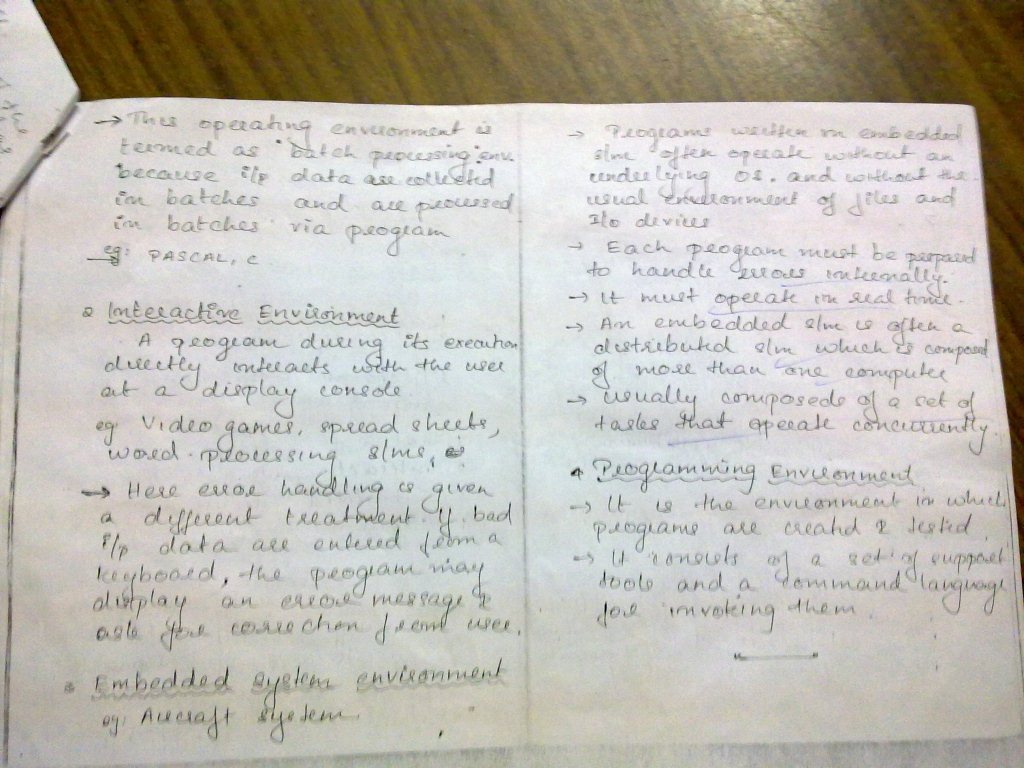 → This operating environment is
termed as "batch processing" env.
because i/p data are collected
in batches and are processed
in batches via program
eg: PASCAL, C
Interactive Environment
A program during its execution
directly interacts with the user
at a display console.
eg Video games, spread sheets,
word processing s/ms,
→ Here error handling is given
a different treatment. If bad
i/p data are entered from a
keyboard, the program may
display an error message &
ask for correction from user.
Embedded system environment
eg: Aircraft system.
→ Programs written in embedded
s/m often operate without an
underlying OS. and without the
usual environment of files and
I/o devices
→ Each program must be prepared
to handle errors internally.
→ It must operate in real time.
→ An embedded s/m is often a
distributed s/m which is composed
of more than one computer
→ usually composede of a set of
tasks that operate concurrently.
Programming Environment
→ It is the environment in which
programs are created & tested.
→ It consists of a set of support
tools and a command language
for invoking them.